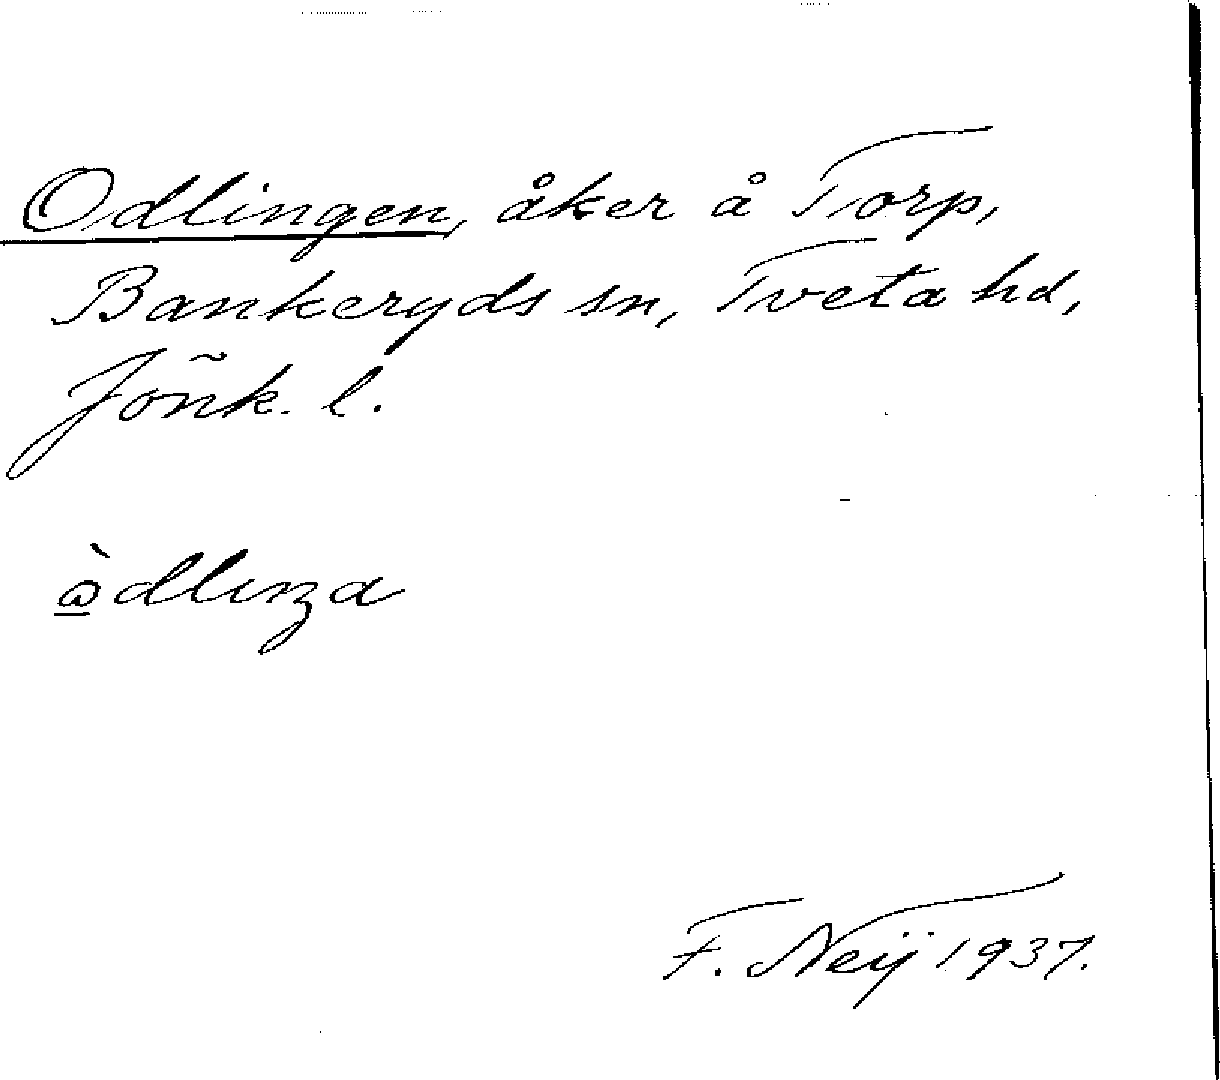 Odlingen, åker å Torp,
Bankeryds sn, Tveta hd,
Jönk. l.
F. Neij 1937.